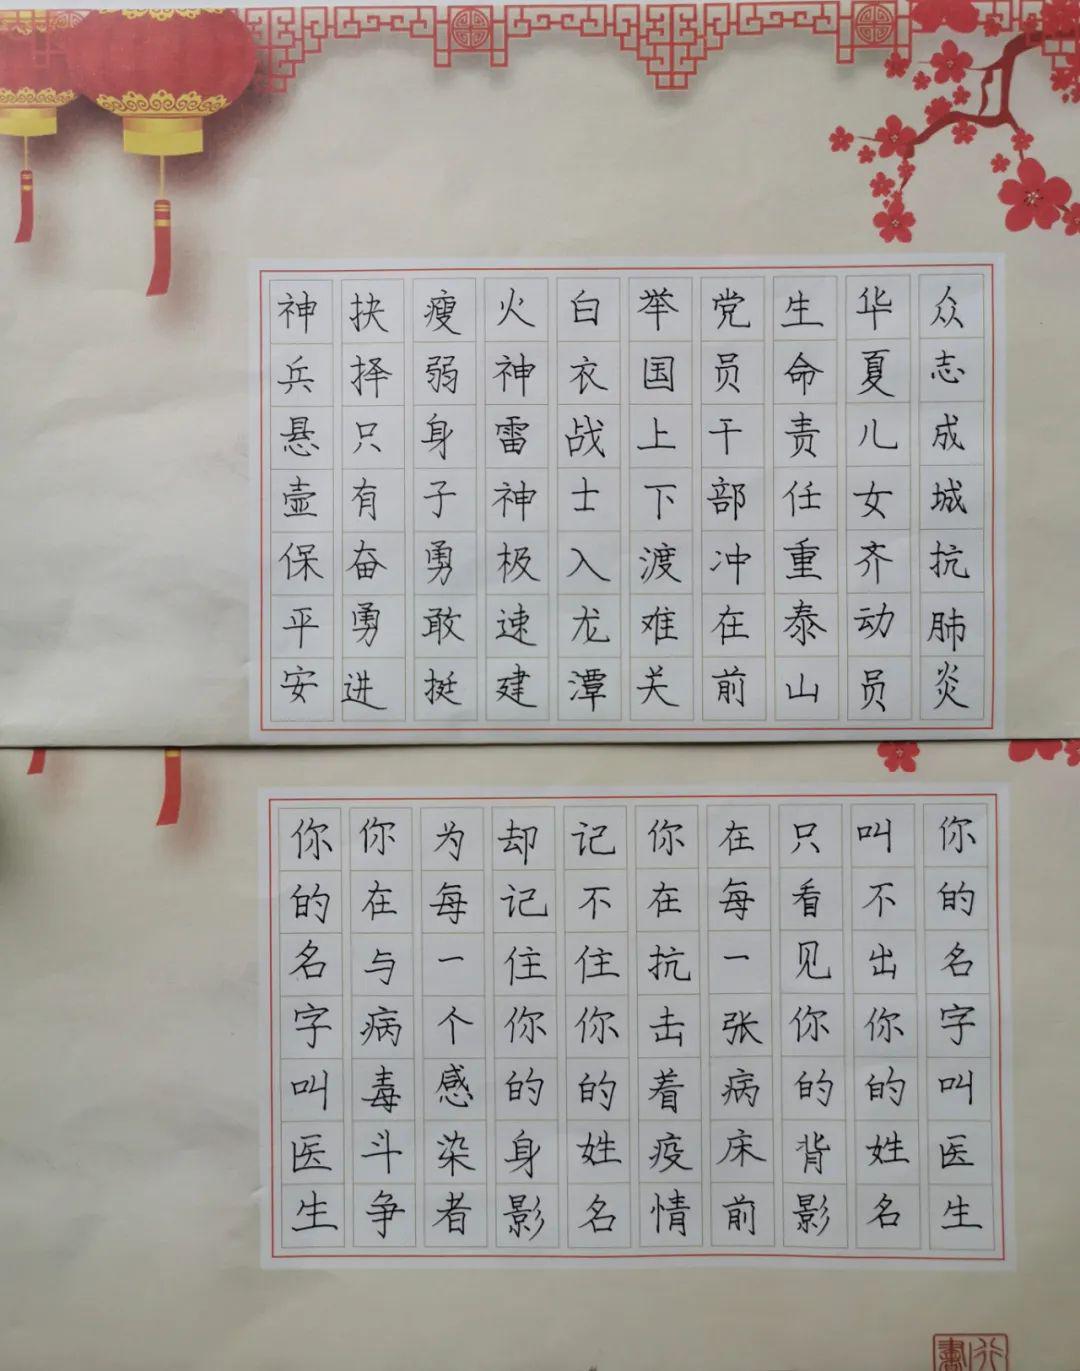 众志成城抗肺炎
华夏儿女齐动员
生命责任重泰山
党员干部冲在前
举国上下渡难关
白衣战士入龙潭
火神雷神极速建
瘦弱身子勇敢挺
抉择只有奋勇进
神兵悬壶保平安
你的名字叫医生
叫不出你的姓名
只看见你的背影
在每一张病床前
你在抗击着疫情
记不住你的姓名
却记住你的身影
为每一个感染者
你在与病毒斗争
你的名字叫医生